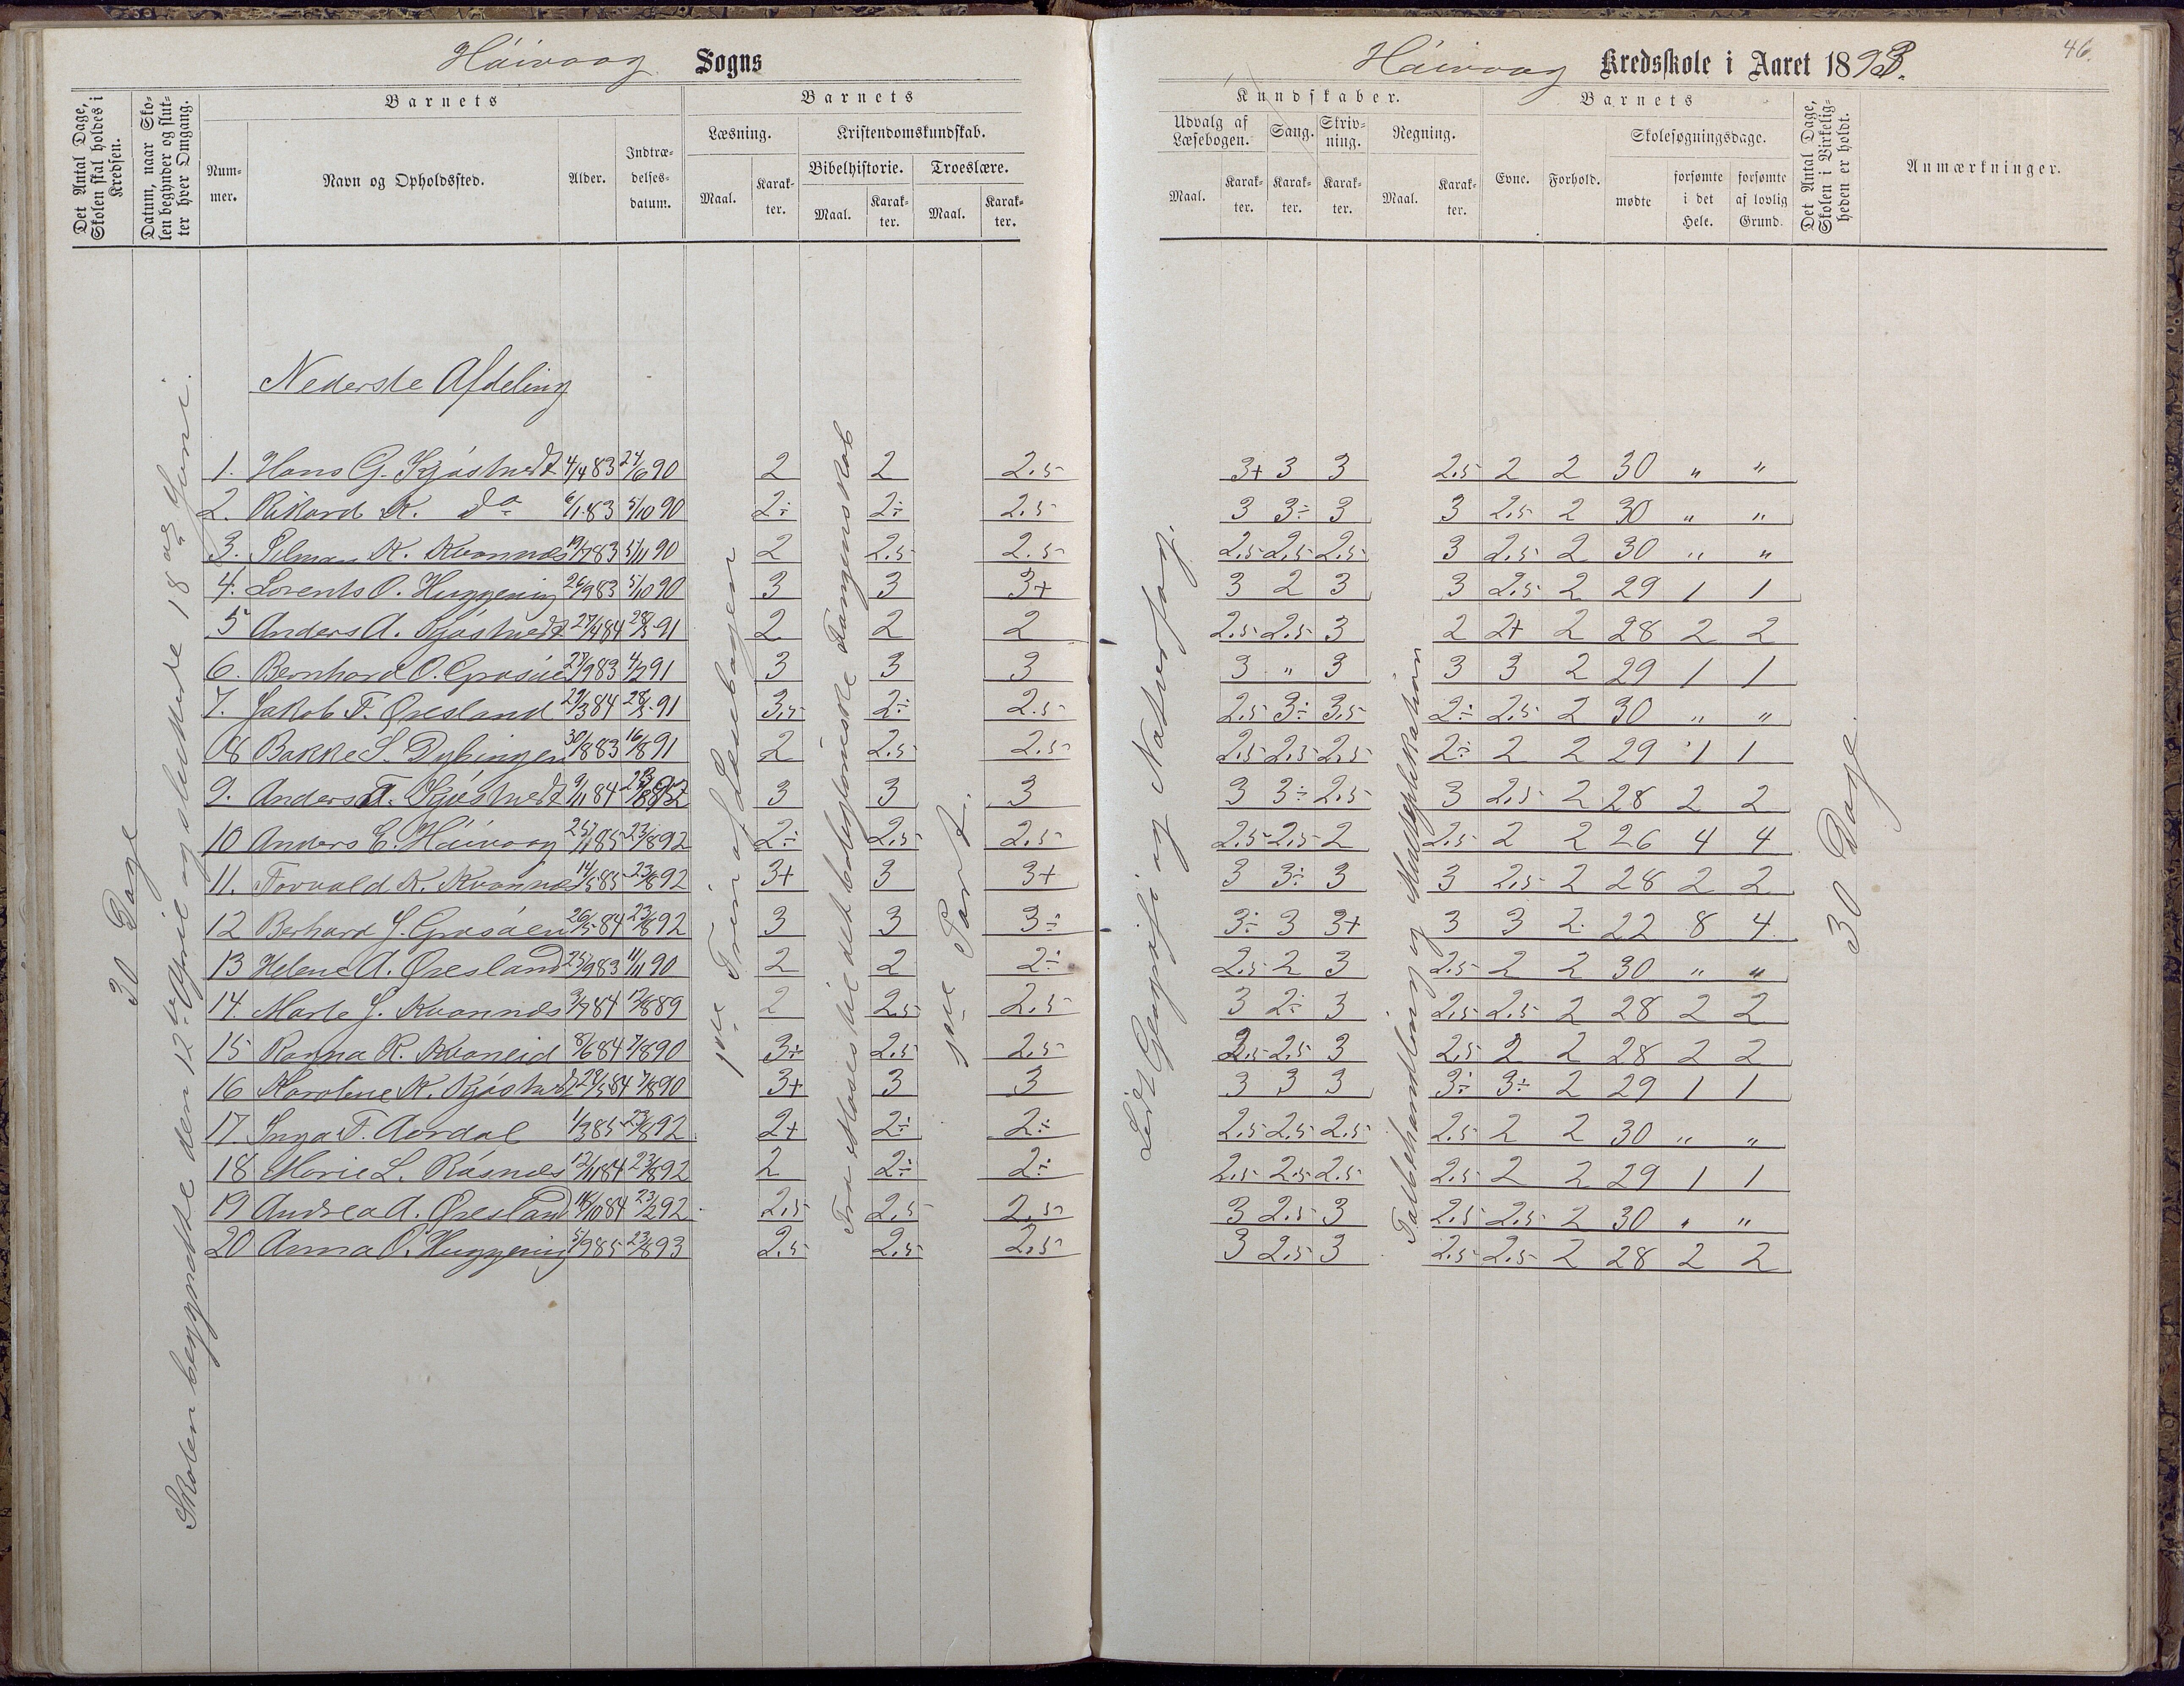 Höivaag Sogns
Höivaag Kredsskole i Aaret 1893.
46.
Det Antal Dage, Skolen skal holdes i Kredsen.
Datum, naar Skolen begynder og slutter hver Omgang.
Barnets
Nummer.
Navn og Opholdssted.
Alder.
Indtrædelsesdatum.
Barnets
Læsning.
Maal.
Karakter.
Kristendomskundskab.
Bibelhistorie.
Maal.
Karakter.
Troeslære.
Maal.
Karakter.
Kundskaber.
Udvalg af Læsebogen.
Maal.
Karakter.
Sang.
Karakter.
Skrivning.
Karakter.
Regning.
Maal.
Karakter.
Barnets
Evne.
Forhold.
Skolesøgningsdage.
mødte
forsømte i det Hele.
forsømte af lovlig Grund.
Det Antal Dage, Skolen i Virkeligheden er holdt.
Anmærkninger.
30 Dage
Skolen begyndte den 12te April og sluttede 18de Juni.
Nederste Afdeling
1ste Trin af Læsebogen
Fra Moses til det babyloniske Fangenskab
1ste Part.
Lidt Geografi og Naturfag.
Talbehandling og Multiplikation
30 Dage.
1. Hans G. Kjøstvedt 4/4 83 24/6 90 2 2 2.5 3+ 3 3 2.5 2 2 30 " "
2. Rikard K. do 6/1 83 5/10 90 2÷ 2÷ 2.5 3 3÷ 3 3 2.5 2 30 " "
3. Silman K. Kvannes 19/7 83 5/11 90 2 2.5 2.5 2.5 2.5 2.5 3 2.5 2 30 " "
4. Lorents O. Huggening 26/9 83 5/10 90 3 3 3+ 3 2 3 3 2.5 2 29 1 1
5 Anders A. Kjøstvedt 27/4 84 28/5 91 2 2 2 2.5 2.5 3 2 2+ 2 28 2 2
6. Bernhard O. Grosøen 27/9 83 4/2 91 3 3 3 3 " 3 3 3 2 29 1 1
7. Jakob F. Øresland 29/3 84 28/5 91 3.5 2÷ 2.5 2.5 3÷ 3.5 2÷ 2.5 2 30 " "
8 Bakke S. Dybingen 30/8 83 16/8 91 2 2.5 2.5 2.5 2.5 2.5 2÷ 2 2 29 1 1
9. Anders T. Kjøstvedt 9/11 84 23/8 92 3 3 3 3 3÷ 2.5 3 2.5 2 28 2 2
10 Anders E. Höivaag 25/1 85 23/8 92 2÷ 2.5 2.5 2.5 2.5 2 2.5 2 2 26 4 4
11. Torvald K. Kvannes 14/5 85 23/8 92 3+ 3 3+ 3 3÷ 3 3 2.5 2 28 2 2
12 Berhard J. Grosøen 26/5 84 23/8 92 3 3 3÷ 3÷ 3 3+ 3 3 2 22 8 4
13 Helene A. Øresland 25/9 83 11/11 90 2 2 2÷ 2.5 2 3 2.5 2 2 30 " "
14. Marte J. Kvannes 3/7 84 12/8 89 2 2.5 2.5 3 2÷ 3 2.5 2.5 2 28 2 2
15 Ranna R. Kvaneid 8/6 84 7/8 90 3÷ 2.5 2.5 2.5 2.5 3 2.5 2 2 28 2 2
16 Karoline K. Kjøstvedt 29/5 84 7/8 90 3+ 3 3 3 3 3 3÷ 3÷ 2 29 1 1
17. Inga T. Aordal 1/3 85 23/8 92 2+ 2÷ 2÷ 2.5 2.5 2.5 2.5 2 2 30 " "
18 Marie L. Røsnes 12/11 84 23/8 92 2 2÷ 2÷ 2.5 2.5 2.5 2.5 2 2 29 1 1
19 Andrea A. Øresland 14/10 84 23/2 92 2.5 2.5 2.5 3 2.5 3 2.5 2.5 2 30 " "
20 Anna O. Huggening 5/9 85 23/8 93 2.5 2.5 2.5 3 2.5 3 2.5 2.5 2 28 2 2